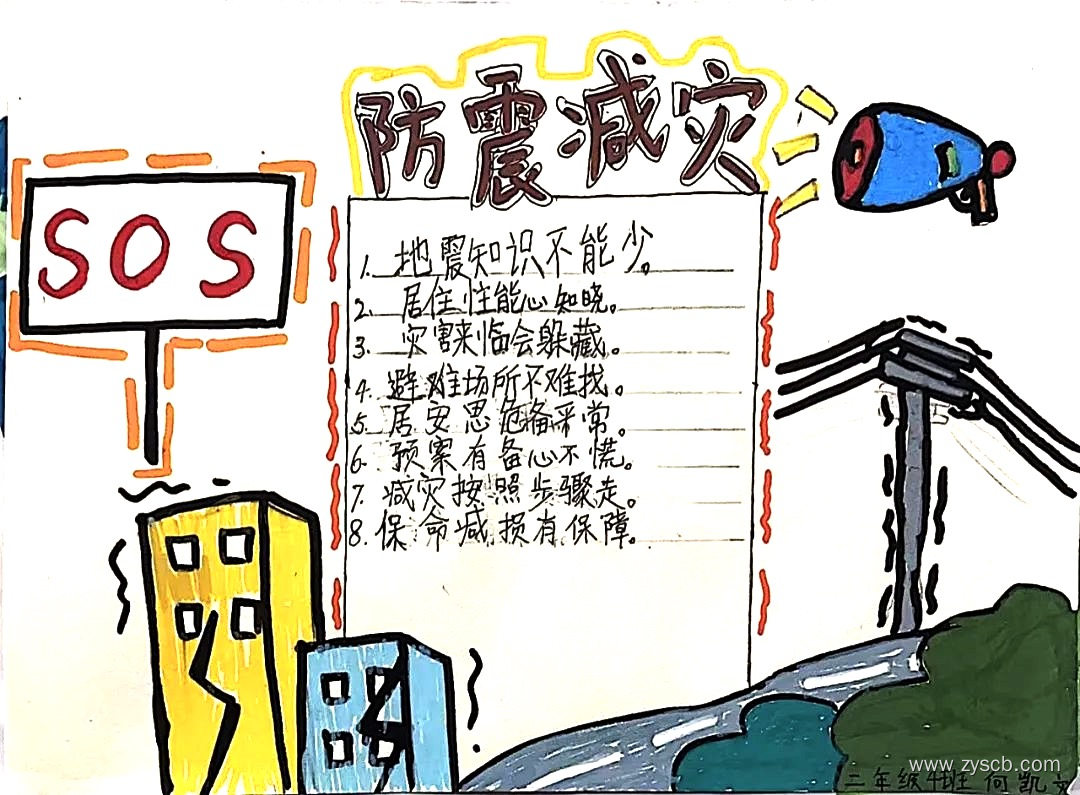 防震减灾
SOS
1. 地震知识不能少。
2. 居住性能心知晓。
3. 灾害来临会躲藏。
4. 避难场所不难找。
5. 居安思危备采常。
6. 预案有备心不慌。
7. 减灾按照步骤走。
8. 保命减损有保障。
www.zyscb.com
二年级4班 何凯文